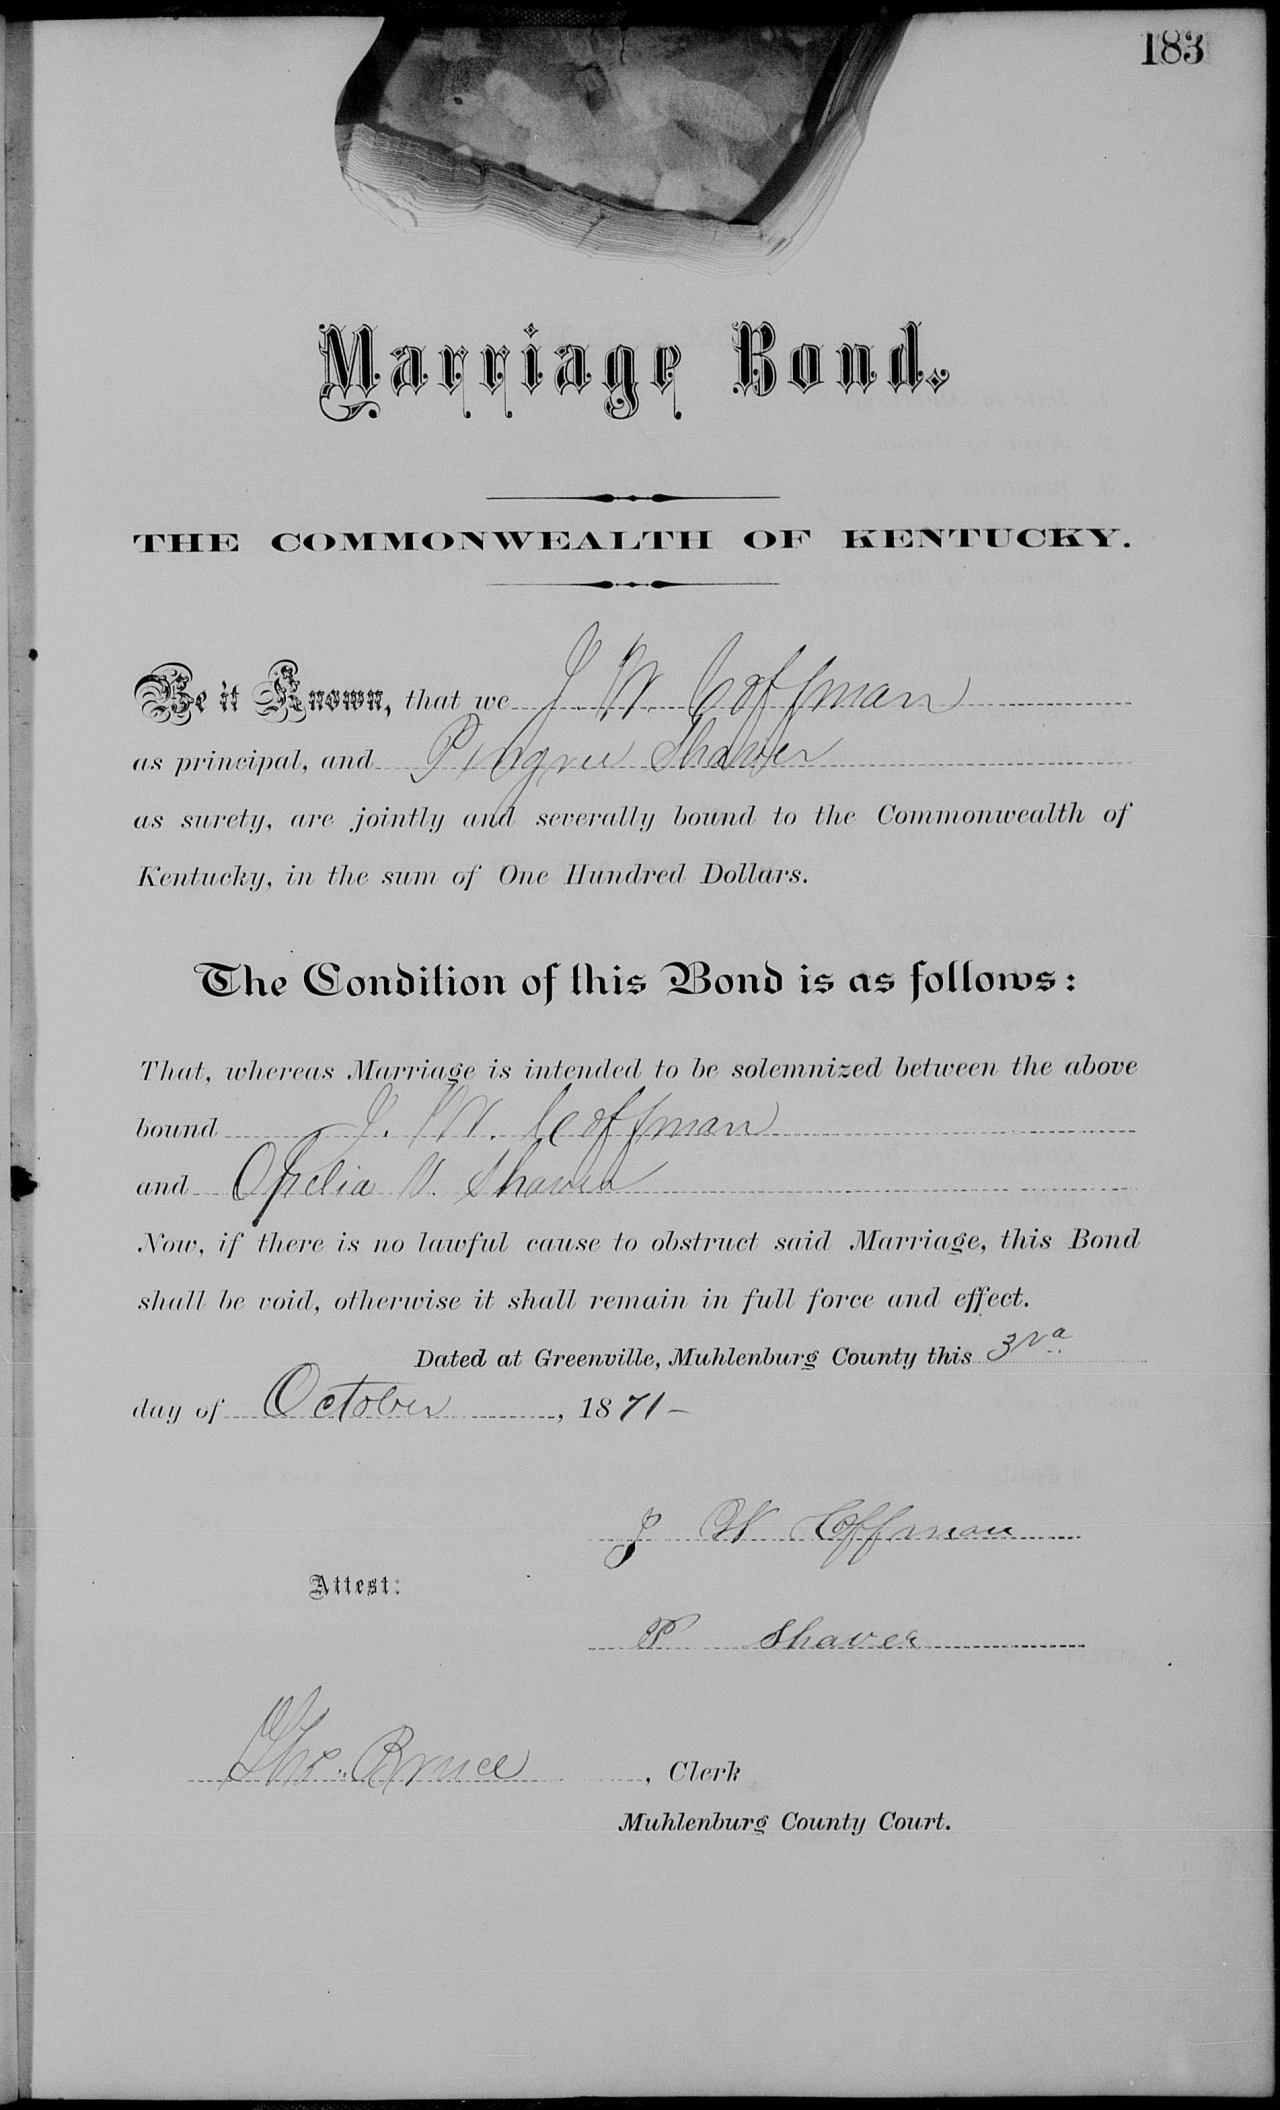 183
Marriage Bond.
THE COMMONWEALTH OF KENTUCKY.
Be it Known, that we J. W. Coffman
as principal, and Pingree Shaver
as surety, are jointly and severally bound to the Commonwealth of
Kentucky, in the sum of One Hundred Dollars.
The Condition of this Bond is as follows:
That, whereas Marriage is intended to be solemnized between the above
bound J. W. Coffman
and Ophelia V. Shaver
Now, if there is no lawful cause to obstruct said Marriage, this Bond
shall be void, otherwise it shall remain in full force and effect.
Dated at Greenville, Muhlenburg County this 3rd
day of October, 1871-
J W Coffman
Attest:
P Shaver
Tho. Bruce, Clerk
Muhlenburg County Court.